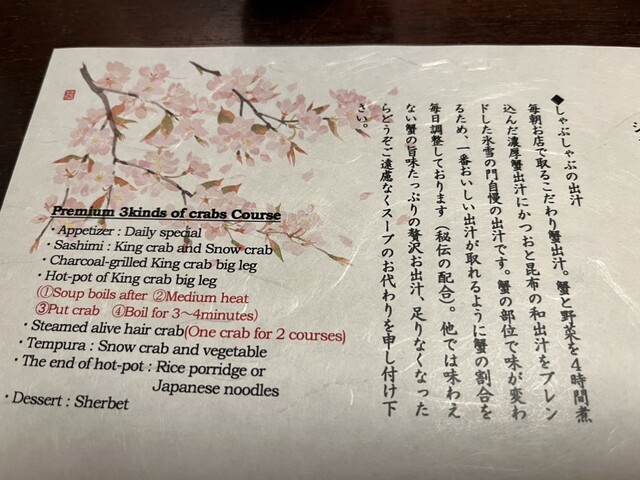 Premium 3kinds of crabs Course
・Appetizer : Daily special
・Sashimi : King crab and Snow crab
・Charcoal-grilled King crab big leg
・Hot-pot of King crab big leg
(①Soup boils after ②Medium heat
③Put crab ④Boil for 3～4minutes)
・Steamed alive hair crab(One crab for 2 courses)
・Tempura : Snow crab and vegetable
・The end of hot-pot : Rice porridge or
Japanese noodles
・Dessert : Sherbet
◆しゃぶしゃぶの出汁
毎朝お店で取るこだわり蟹出汁。蟹と野菜を4時間煮
込んだ濃厚蟹出汁にかつおと昆布の和出汁をブレン
ドした氷雪の門自慢の出汁です。蟹の部位で味が変わ
るため、一番おいしい出汁が取れるように蟹の割合を
毎日調整しております（秘伝の配合）。他では味わえ
ない蟹の旨味たっぷりの贅沢お出汁、足りなくなった
らどうぞご遠慮なくスープのお代わりを申し付け下
さい。